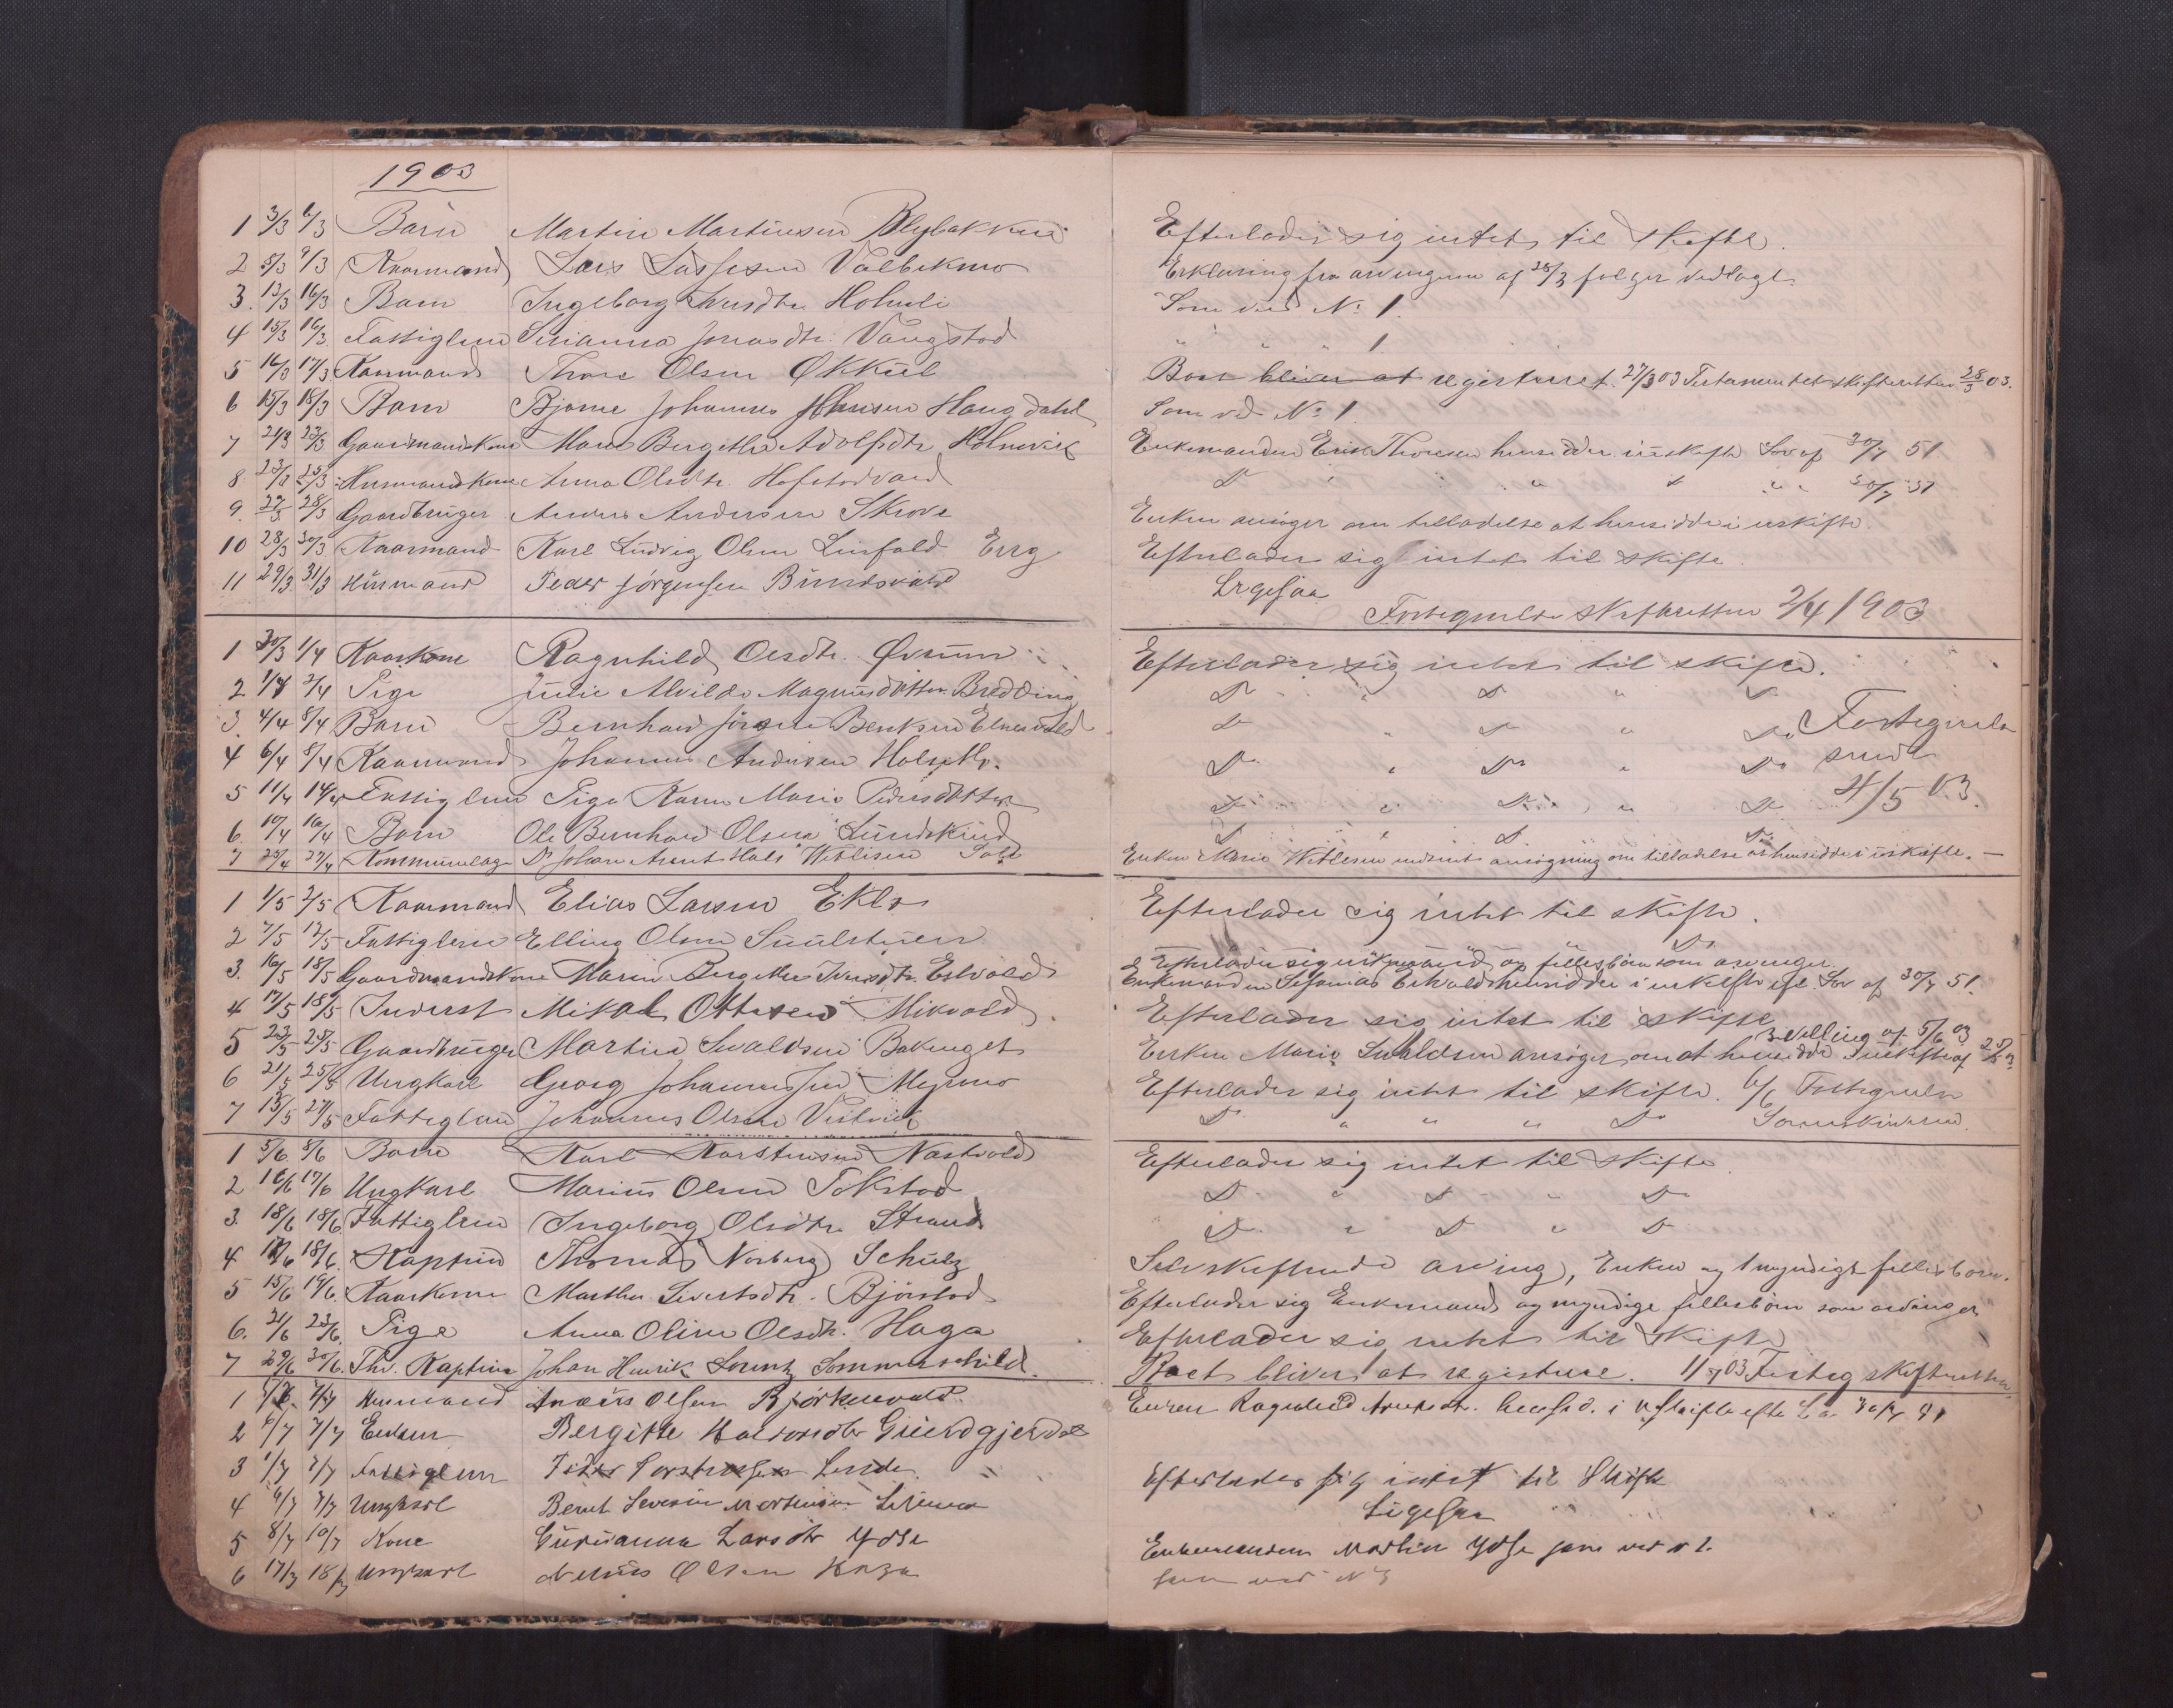 1903
1 3/3 6/3 Barn Martin Martinsen Blybakken Efterlader sig intet til skifte.
2 5/3 9/3 Kaarmand Lars Larssen Valbekmo Erklæring fra arvingerne af 25/3 følger vedlagt
3. 13/3 16/3 Barn Ingeborg Iversdtr. Holmli Som ved No 1.
4 15/3 16/3 Fattiglem Jonasdtr. Vangstad " " " 1.
5 16/3 17/3 Kaarmand Thore Olsen Økkül Boet bliver at registreret. 27/3 03 Testamentet skifteretten 28/3 03.
6 15/3 18/3 Barn Bjarne Johannes Johnsen Haugdahl Som ved No 1
7 21/3 23/3 Gaardmandskone Maren Bergithe Adolfsdtr. Holmvik Enkemanden Erik Thoresen hensidder i uskifte Lov af 30/7 51
8 23/3 25/3 Husmandskone Anna Olsdtr. Hofstadvald Do " " " " 30/7 51
9. 22/3 28/3 Gaardbruger Andreas Andersen Skrove Enken ansøger om tilladelse at hensidde i uskifte.
10 28/3 30/3 Kaarmand Karl Ludvig Olsen Linfald Erig Efterlader sig intet til skifte.
11 29/3 31/3 Husmand Peder Jørgensen Bundsvald Ligesaa
Fortegnelse skifteretten 2/4 1903
1 30/3 1/4 Kaarkone Ragnhild Olsdtr. Øvrum Efterlader sig intet til skifte.
2 1/4 2/4 Pige Julie Alvilde Magnusdatter Bredding Do " Do " Do
3. 4/4 8/4 Barn Bernhard Jørgen Bentsen Elnesvald Do " Do " Do Fortegnelse
4 6/4 8/4 Kaarmand Johannes Andersen Do " Do " Do sendt
5 11/4 14/4 Fattiglem Pige Karen Marie Pedersdatter Do " Do " Do 4/5 03.
6. 10/4 16/4 Barn Ole Bernhard Olsen Lundskind Do " Do Do
7 25/4 27/4 Kommunelæge Dr Johan Arent Hals Wetlesen Enken Marie Wetlesen indsendt ansøgning om tilladelse at hensidde i uskifte. —
1 1/5 2/5 Kaarmand Elias Larsen Eklo Efterlader sig intet til skifte.
2 7/5 12/5 Fattiglem Elling Olsen Do
3. 16/5 18/5 Gaardmandskone Maren Bergithe Iversdtr. Estvald Efterlader sig enkemand og fællesbørn som arvinger
Enkemanden Estvald hensidder i uskifte efl. Lov af 30/7 51.
4 17/5 18/5 Inderst Mikal Ottesen Mikvold. Efterlader sig intet til skifte
5 23/5 25/5 Gaardbruger Martin Svaldsen Bakenget Enken Marie Svaldsen ansøger om at hensidde i uskifte af
bevilling af 5/6 03
6 21/5 25/5 Ungkarl Georg Johannessen Myrmo Efterlader sig intet til skifte. 6/6 Fortegnelse
7 15/5 27/5 Fattiglem Johannes Olsen Vestvik Do " " " Do Sorenskriveren.
1 5/6 8/6 Barn Karl Karstensen Nastvold Efterlader sig intet til skifte.
2 16/6 17/6 Ungkarl Marius Olsen Tokstad Do " Do " Do
3. 18/6 18/6 Fattiglem Ingeborg Olsdtr. Strand Do " Do " Do
4 17/6 18/6. Kaptein Thomas Norberg Schulz Selvskiftende arving, Enken og 1 myndigt fællesbarn.
5 15/6 19/6. Kaarkone Marthe Sivertsdtr. Bjørstad Efterlader sig Enkemand og myndige fællesbørn som arvinger
6. 21/6 23/6. Pige Anna Oline Olsdtr. Haga Efterlader sig intet til skifte
7 29/6 30/6. Thv. Kaptein Johan Henrik Lorentz Sommerschild. Boet bliver at registrere. 1/7 03 Forteg skifteretten.
1 7/7 Husmand Anders Olsen Bjørkenvald. Enken Ragnhild hensid. i Uskifte efter Lov 30/7 51
2 6/7 7/7 Enken Bergitte Grundgjerdal
3 1/7 7/7 Fattiglem Peder Torstensen Linde. Efterlader sig intet til Skifte
4 6/7 7/7 Ungkarl Bernt Severin Mortensen Ligesaa
5 8/7 10/7 Kone Gurianna Larsdtr Ydse Enkemanden Martin Ydse som ved n 2.
6 17/7 18/7 Ungkarl Olsen Haga som ved N 3